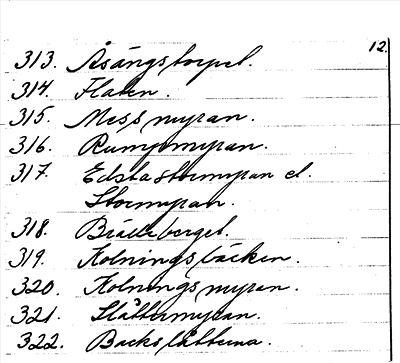 12.
313. Åsängstorpet.
314. Flaten.
315. Mossmyran.
316. Rumpmyran.
317. Edstastormyran el.
Stormyran.
318. Brätteberget.
319. Kolningsbäcken.
320. Kolningsmyran.
321. Slåttermyran.
322. Backslåtterna.